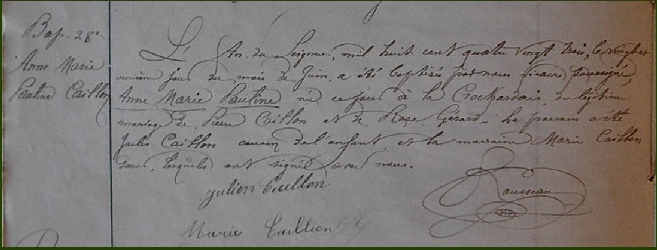 Bap. 28e
Anne Marie
Pauline Caillon
L'An du Seigneur, mil huit cent quatre vingt trois, le vingt
unième jour du mois de Juin, a été baptisée par nous vicaire soussigné,
Anne Marie Pauline née ce jour à la du légitime
mariage de Pierre Caillon et de Rose Gérard. Le parrain a été
Jules Caillon cousin de l'enfant, et la marraine Marie Caillon
lesquels ont signé avec nous.
Julien Caillon
Rousseau
Marie Caillion